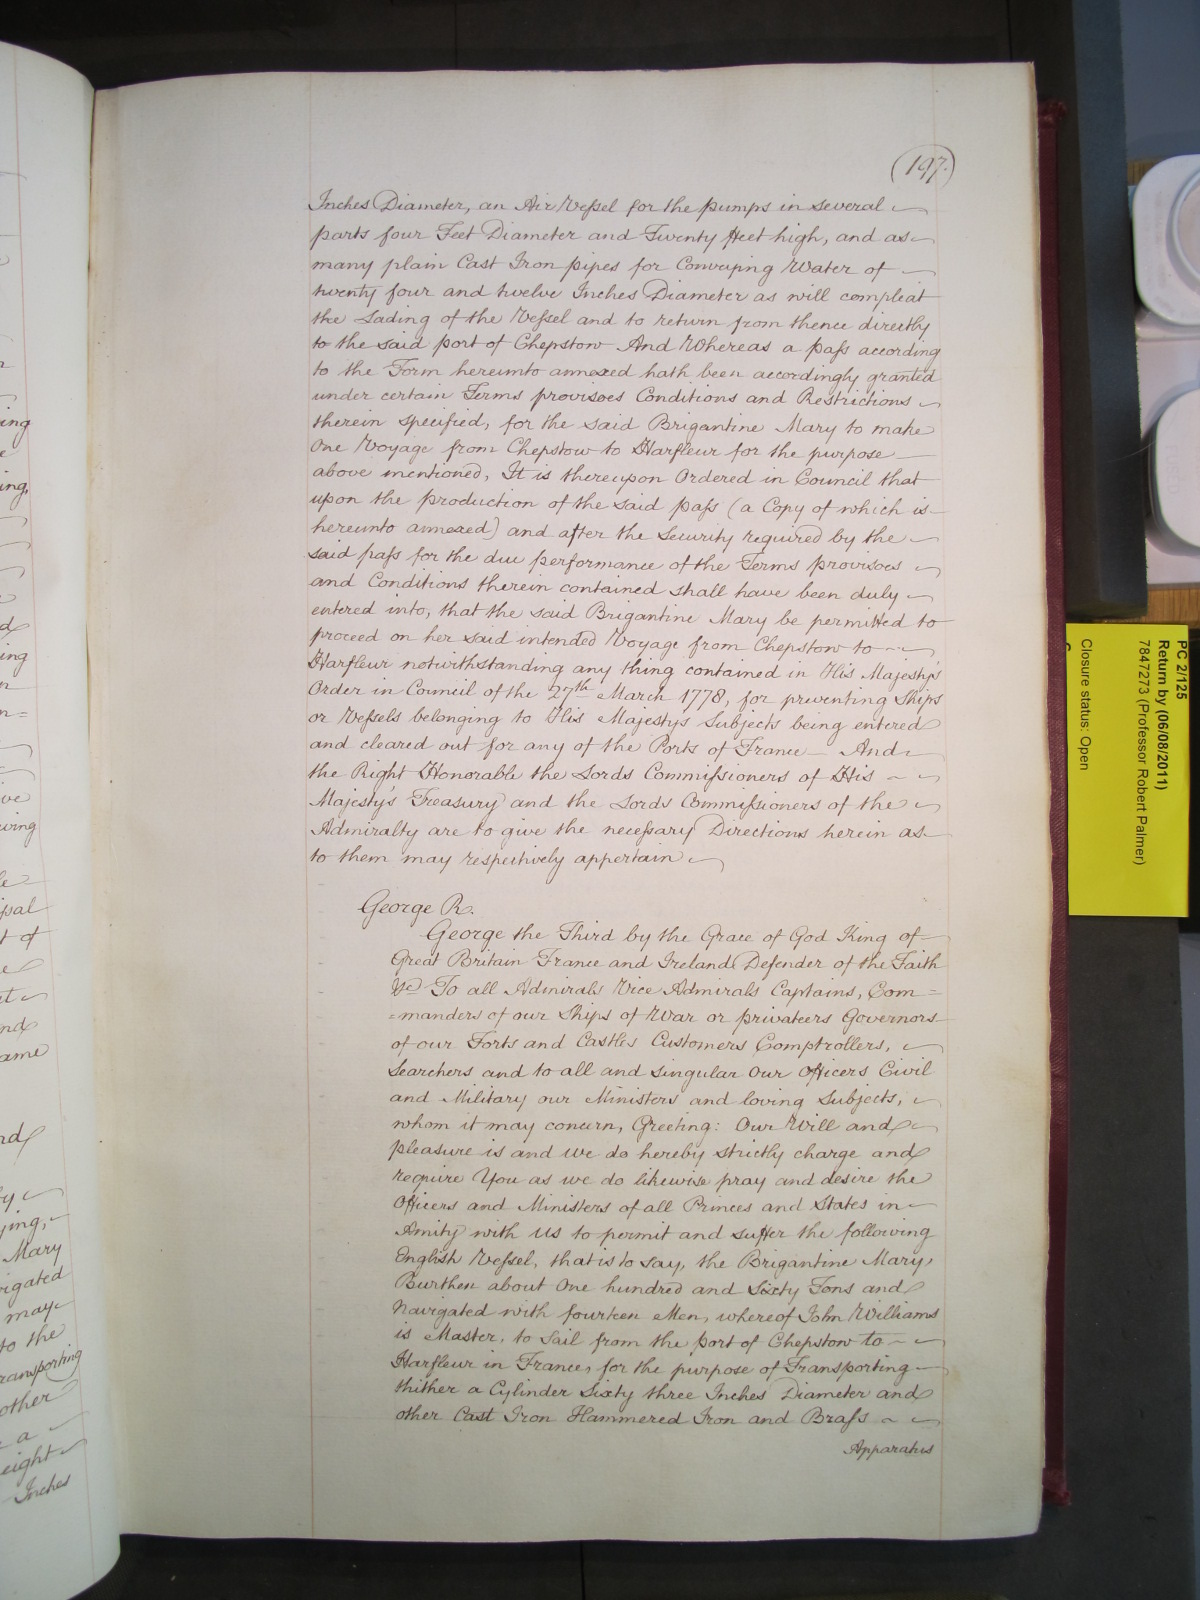 (197.)
Inches Diameter, an Air Veſsel for the pumps in several
parts four Feet Diameter and Twenty feet high, and as
many plain Cast Iron pipes for Conveying Water of
twenty four and twelve Inches Diameter as will compleat
the Lading of the Veſsel and to return from thence directly
to the said port of Chepstow And Whereas a paſs according
to the Form hereunto annexed hath been accordingly granted
under certain Terms provisoes Conditions and Restrictions
therein specified, for the said Brigantine Mary to make
One Voyage from Chepstow to Harfleur for the purpose
above mentioned, It is thereupon Ordered in Council that
upon the production of the said paſs (a Copy of which is
hereunto annexed) and after the Security required by the
said paſs for the due performance of the Terms provisoes
and Conditions therein contained shall have been duly
entered into, that the said Brigantine Mary be permitted to
proceed on her said intended Voyage from Chepstow to
Harfleur notwithstanding any thing contained in His Majesty's
Order in Council of the 27th March 1778, for preventing Ships
or Veſsels belonging to His Majestys Subjects being entered
and cleared out for any of the Ports of France And
the Right Honorable the Lords Commiſsioners of His
Majesty's Treasury and the Lords Commiſsioners of the
Admiralty are to give the neceſsary Directions herein as
to them may respectively appertain
George R.
George the Third by the Grace of God King of
Great Britain France and Ireland Defender of the Faith
&c To all Admirals Vice Admirals Captains, Com=
=manders of our Ships of War or privateers Governors
of our Forts and Castles Customers Comptrollers,
Searchers and to all and singular Our Officers Civil
and Military our Ministers and loving Subjects,
whom it may concern, Greeting: Our Will and
pleasure is and we do hereby strictly charge and
require You as we do likewise pray and desire the
Officers and Ministers of all Princes and States in
Amity with us to permit and suffer the following
English Veſsel, that is to say, the Brigantine Mary,
Burthen about One hundred and Sixty Tons and
Navigated with fourteen Men, whereof John Williams
is Master, to Sail from the port of Chepstow to
Harfleur in France, for the purpose of Transporting
thither a Cylinder Sixty three Inches Diameter and
other Cast Iron Hammered Iron and Braſs
Apparatus
PC 2/125
Return by (06/08/2011)
7847273 (Professor Robert Palmer)
Closure status: Open
ing
ing,
ing
ive
pſal
t of
and
ame
Mary
vigated
may
to the
ransporting
other
a
eight
Inches